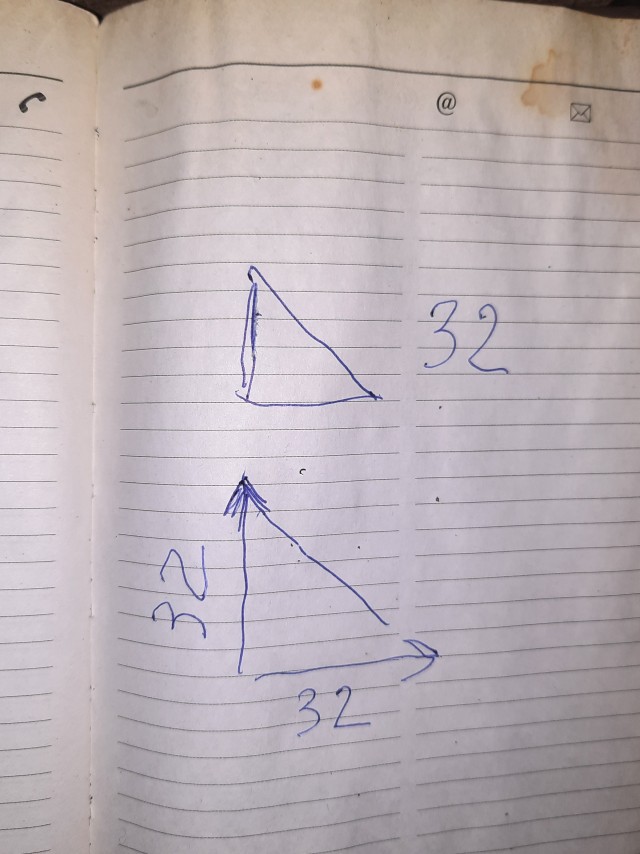 @
32
32
32